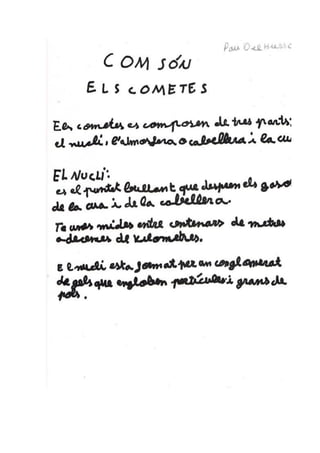 Pau
COM SÓN
ELS COMETES
Els cometes es composen de tres parts:
el nucli, l'atmosfera o cabellera i la cu
EL NUCLI:
es el puntet brillant que despren els gasos
de la cua i de la cabellera.
Te unes mides entre centenars de metres
a decenes de kilometres.
El nucli esta format per an conglomerat
de gels que engloben particules i grans de
pols.